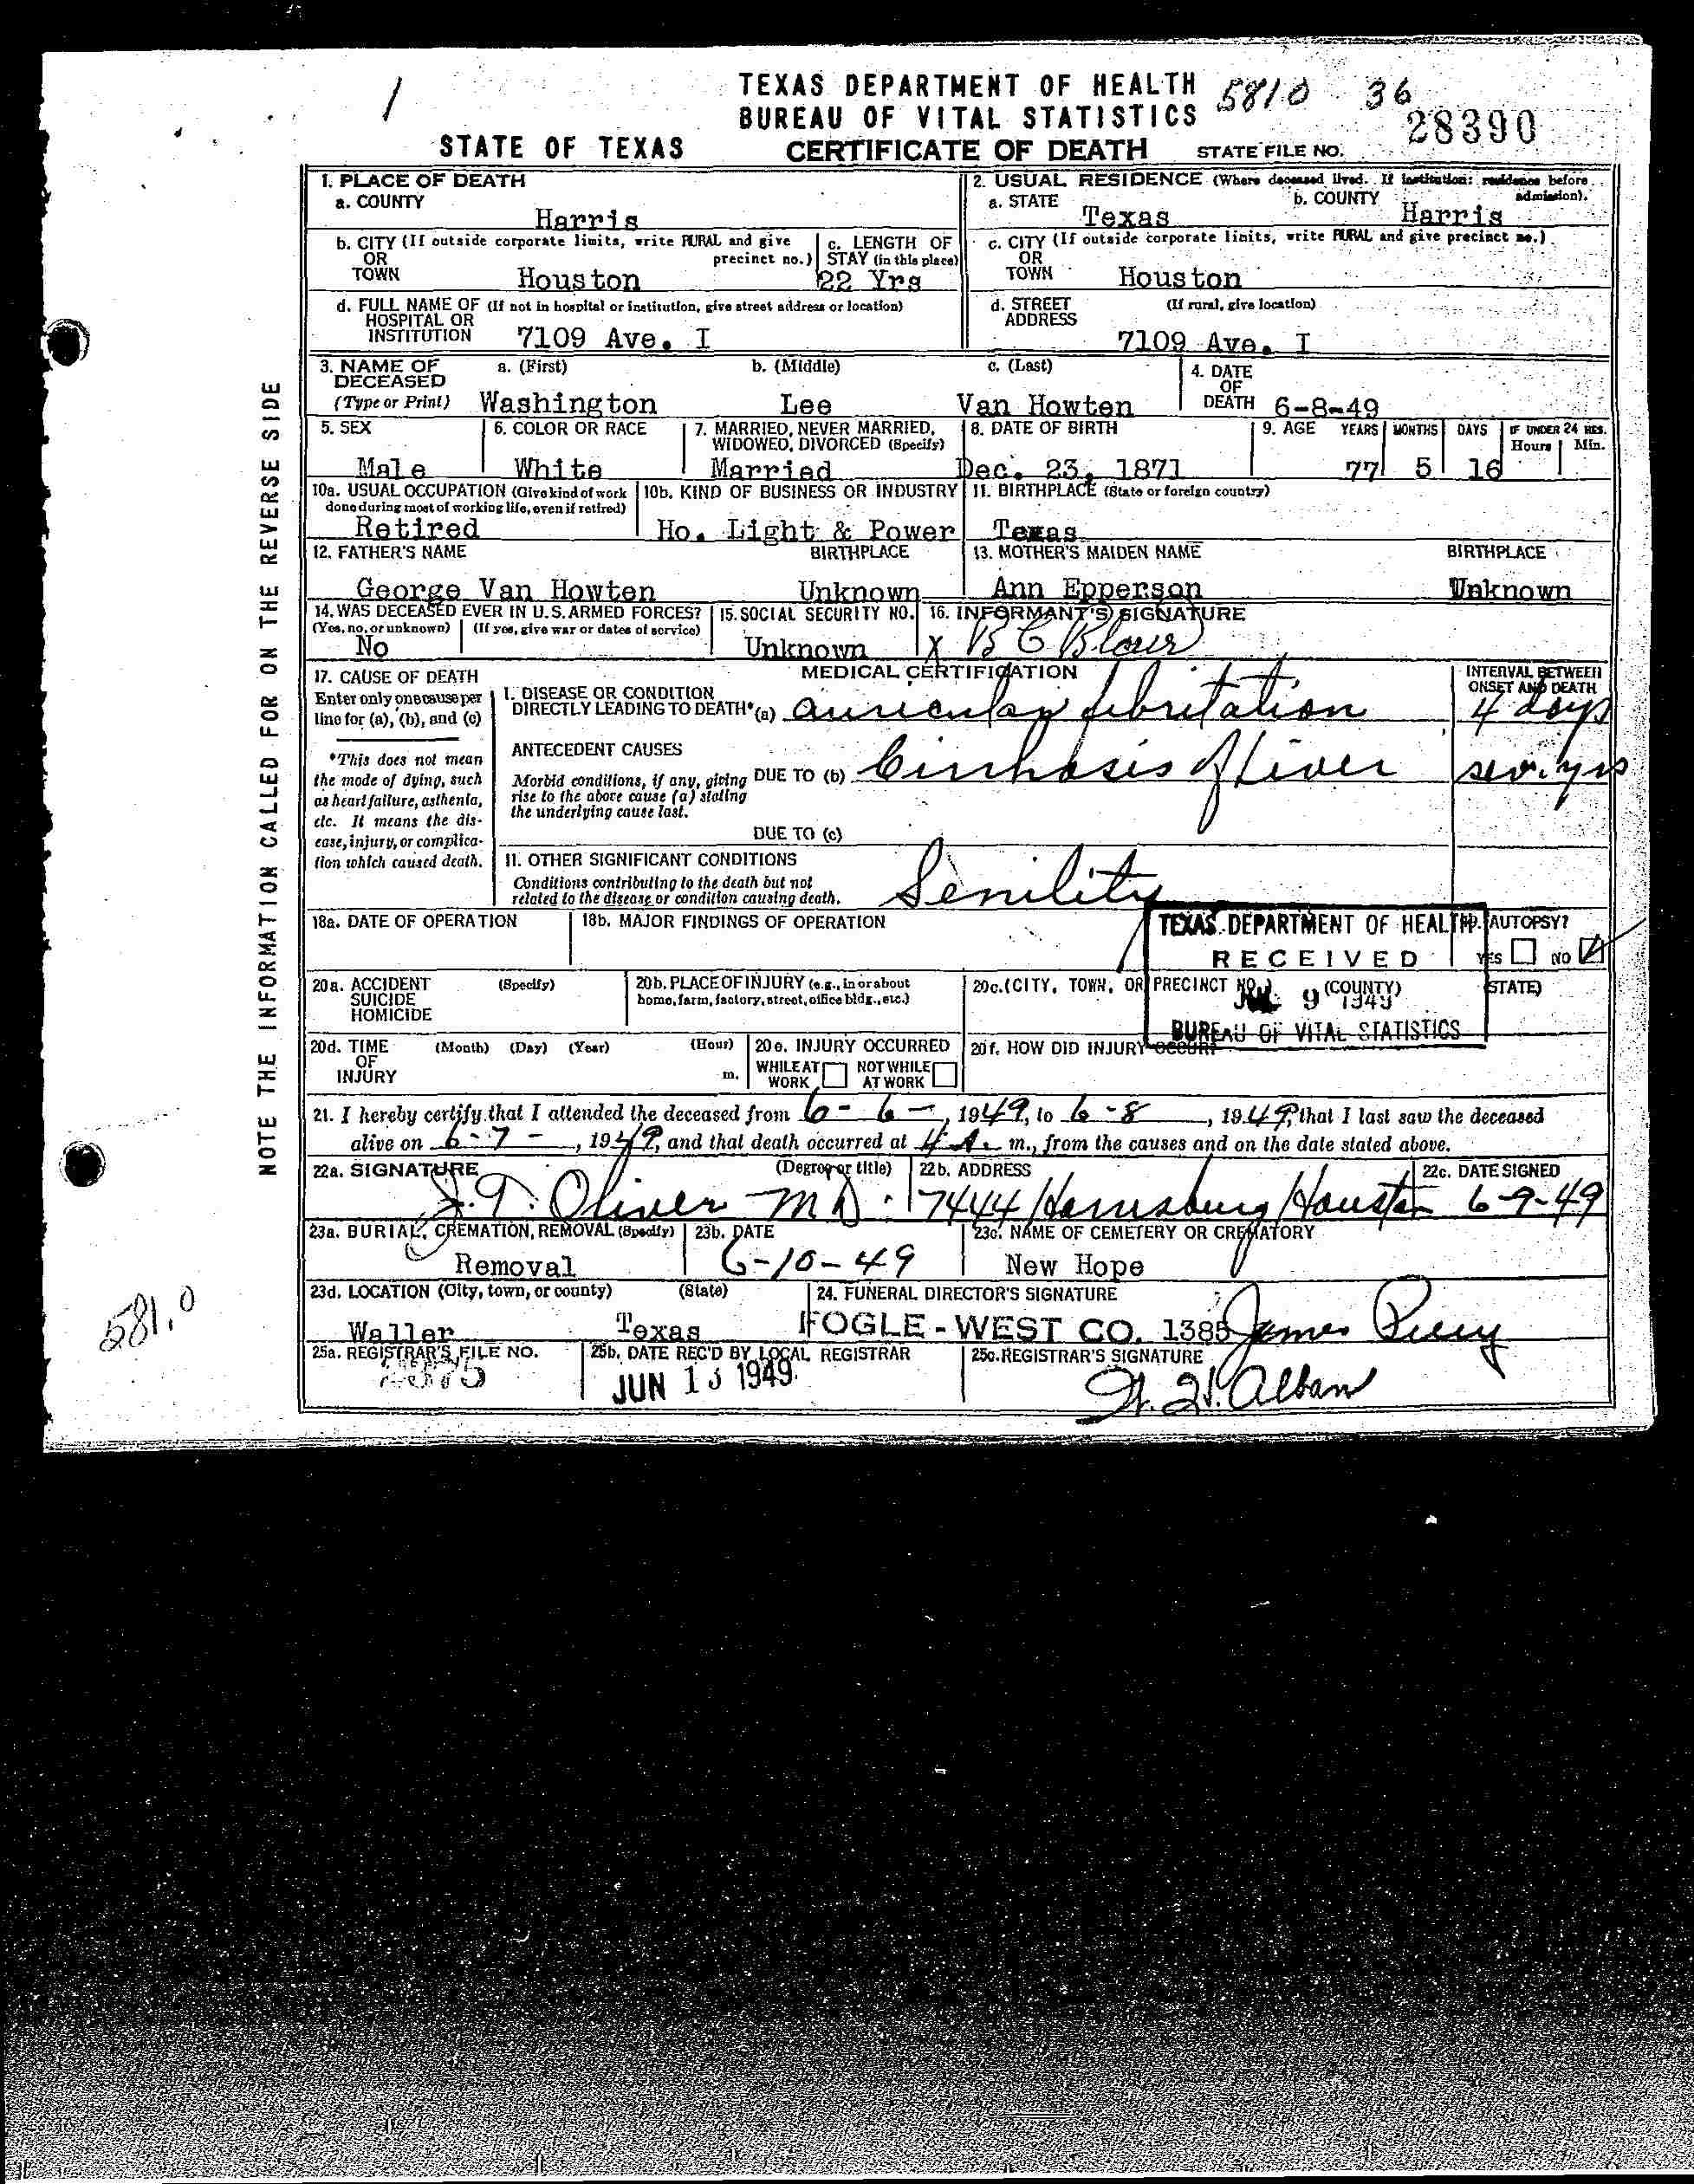 1
TEXAS DEPARTMENT OF HEALTH
BUREAU OF VITAL STATISTICS
5810 36
28390
STATE OF TEXAS CERTIFICATE OF DEATH STATE FILE NO.
1. PLACE OF DEATH
a. COUNTY
Harris
2. USUAL RESIDENCE (Where deceased lived. If institution: residence before admission).
a. STATE Texas b. COUNTY Harris
b. CITY (If outside corporate limits, write RURAL and give precinct no.)
OR
TOWN Houston
c. LENGTH OF
STAY (in this place)
22 Yrs
c. CITY (If outside corporate limits, write RURAL and give precinct no.)
OR
TOWN Houston
d. FULL NAME OF (If not in hospital or institution, give street address or location)
HOSPITAL OR
INSTITUTION 7109 Ave. I
d. STREET (If rural, give location)
ADDRESS
7109 Ave. I
3. NAME OF a. (First) b. (Middle) c. (Last)
DECEASED
(Type or Print) Washington Lee Van Howten
4. DATE
OF
DEATH 6-8-49
5. SEX
Male
6. COLOR OR RACE
White
7. MARRIED, NEVER MARRIED,
WIDOWED, DIVORCED (Specify)
Married
8. DATE OF BIRTH
Dec. 23, 1871
9. AGE YEARS MONTHS DAYS IF UNDER 24 HRS.
Hours Min.
77 5 16
10a. USUAL OCCUPATION (Give kind of work
done during most of working life, even if retired)
Retired
10b. KIND OF BUSINESS OR INDUSTRY
Ho. Light & Power
11. BIRTHPLACE (State or foreign country)
Texas
12. FATHER'S NAME BIRTHPLACE
George Van Howten Unknown
13. MOTHER'S MAIDEN NAME BIRTHPLACE
Ann Epperson Unknown
14. WAS DECEASED EVER IN U.S. ARMED FORCES?
(Yes, no, or unknown) (If yes, give war or dates of service)
No
15. SOCIAL SECURITY NO.
Unknown
16. INFORMANT'S SIGNATURE
X B C
17. CAUSE OF DEATH
Enter only one cause per
line for (a), (b), and (c)
*This does not mean
the mode of dying, such
as heart failure, asthenia,
etc. It means the dis-
ease, injury, or complica-
tion which caused death.
MEDICAL CERTIFICATION
INTERVAL BETWEEN
ONSET AND DEATH
I. DISEASE OR CONDITION
DIRECTLY LEADING TO DEATH* (a) auricular fibritation 4 days
ANTECEDENT CAUSES
Morbid conditions, if any, giving
rise to the above cause (a) stating
the underlying cause last.
DUE TO (b) Cirrhosis of Liver sev. yrs
DUE TO (c)
II. OTHER SIGNIFICANT CONDITIONS
Conditions contributing to the death but not
related to the disease or condition causing death.
Senility
18a. DATE OF OPERATION
18b. MAJOR FINDINGS OF OPERATION
AUTOPSY?
YES NO
TEXAS DEPARTMENT OF HEALTH
RECEIVED
JUL 9 1949
BUREAU OF VITAL STATISTICS
20a. ACCIDENT (Specify)
SUICIDE
HOMICIDE
20b. PLACE OF INJURY (e.g., in or about
home, farm, factory, street, office bldg., etc.)
20c. (CITY, TOWN, OR PRECINCT NO.) (COUNTY) (STATE)
20d. TIME (Month) (Day) (Year) (Hour)
OF
INJURY m.
20e. INJURY OCCURRED
WHILE AT WORK NOT WHILE AT WORK
20f. HOW DID INJURY OCCUR?
21. I hereby certify that I attended the deceased from 6-6-, 1949, to 6-8, 1949, that I last saw the deceased
alive on 6-7-, 1949, and that death occurred at 4 A. m., from the causes and on the date stated above.
22a. SIGNATURE (Degree or title)
J. T. Oliver MD.
22b. ADDRESS
7444 Harrisburg Houston
22c. DATE SIGNED
6-9-49
23a. BURIAL, CREMATION, REMOVAL (Specify)
Removal
23b. DATE
6-10-49
23c. NAME OF CEMETERY OR CREMATORY
New Hope
23d. LOCATION (City, town, or county) (State)
Waller Texas
24. FUNERAL DIRECTOR'S SIGNATURE
FOGLE-WEST CO. 1385 James
25a. REGISTRAR'S FILE NO.
25b. DATE REC'D BY LOCAL REGISTRAR
JUN 13 1949
25c. REGISTRAR'S SIGNATURE
Alban
NOTE THE INFORMATION CALLED FOR ON THE REVERSE SIDE
581.0